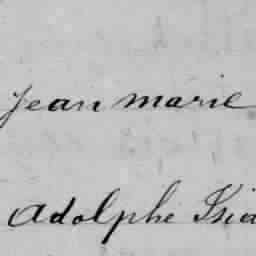 Jean marie
Adolphe Isid